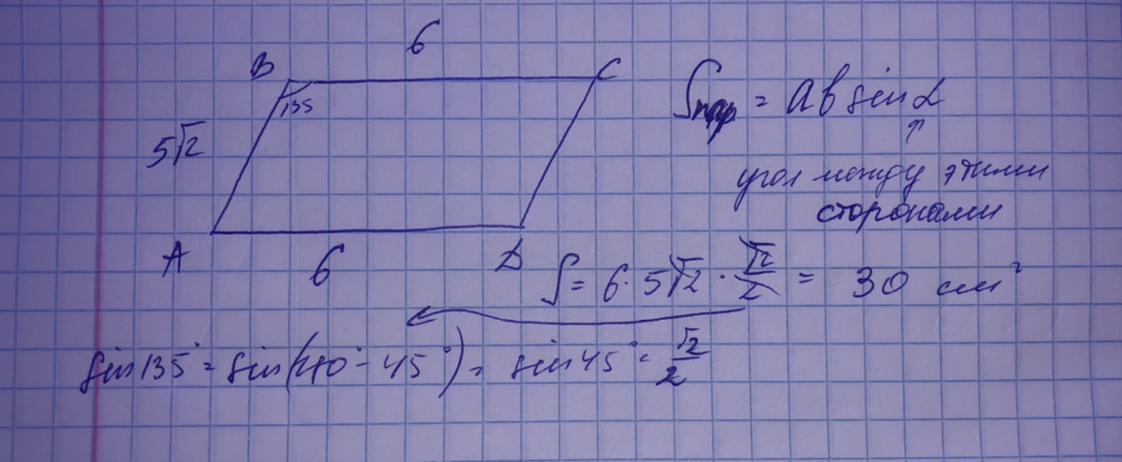 6
B C
135
5√2
A 6 D
Sпар = ab sin α
↑
угол между этими
сторонами
S = 6 · 5√2 · √2/2 = 30 см²
sin 135° = sin(180° - 45°) = sin 45° = √2/2